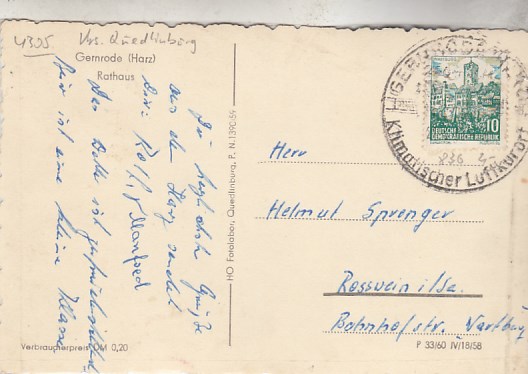 4305 Krs. Quedlinburg
Gernrode (Harz)
Rathaus
Die herzlichsten Grüße
aus dem Harz sendet
Dir Rolf, Manfred
Das Bett ist
für ist eine kleine Klasse
Verbraucherpreis DM 0,20
HO Fotolabor, Quedlinburg, P. N. 1390/59
GERNRODE (HARZ)
Klimatischer Luftkurort
DEUTSCHE
DEMOKRATISCHE REPUBLIK
10
Herr
Helmut Sprenger
Rosswein i/Sa.
Bahnhofstr.
P 33/60 IV/18/58